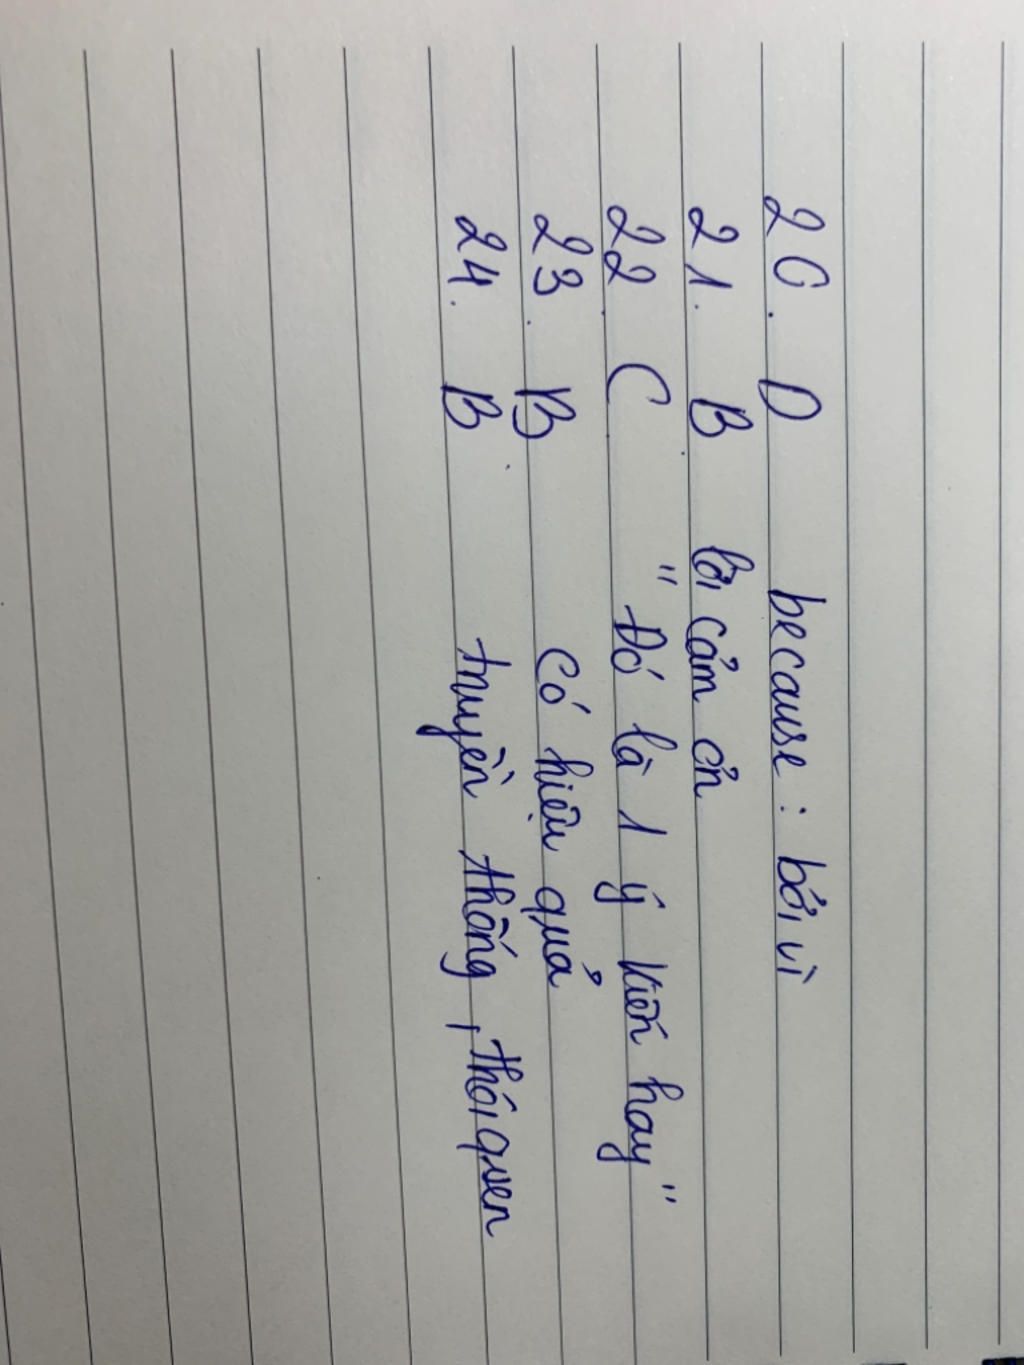 20. D because : bởi vì
21. B lời cảm ơn
22. C "Đó là 1 ý kiến hay"
23. B có hiệu quả
24. B truyền thống, thói quen